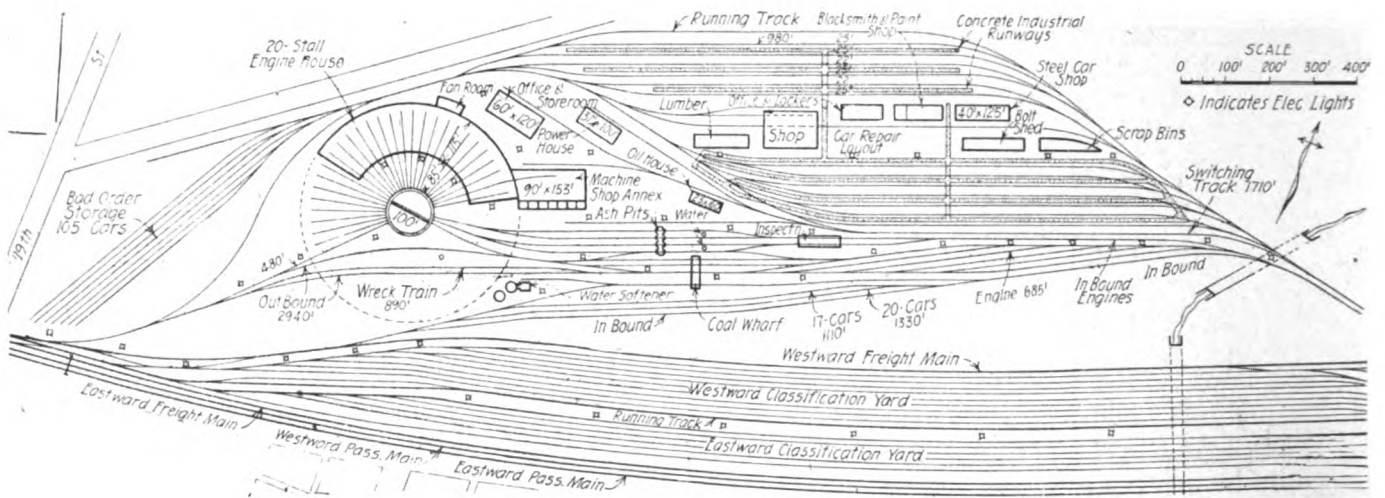 Running Track
Blacksmith & Paint
Shop
Concrete Industrial
Runways
20-Stall
Engine House
980'
25'
SCALE
0 100' 200' 300' 400'
Indicates Elec Lights
Steel Car
Shop
Fan Room
Office &
Storeroom
60'
x 120'
Power
House
Lumber
Office & Lockers
Shop
Car Repair
Layout
40' x 125'
Bolt
Shed
Scrap Bins
Oil House
115'
85'
100'
90' x 153'
Machine
Shop Annex
Ash Pits
Water
Inspect'n
Switching
Track 1710'
St
99th
Bad Order
Storage
105 Cars
480'
Out Bound
2940'
Wreck Train
890'
Water Softener
In Bound
Coal Wharf
17-Cars
1110'
20-Cars
1330'
Engine 685'
In Bound
Engines
In Bound
Westward Freight Main
Westward Classification Yard
Running Track
Eastward Classification Yard
Eastward Freight Main
Westward Pass. Main
Eastward Pass. Main